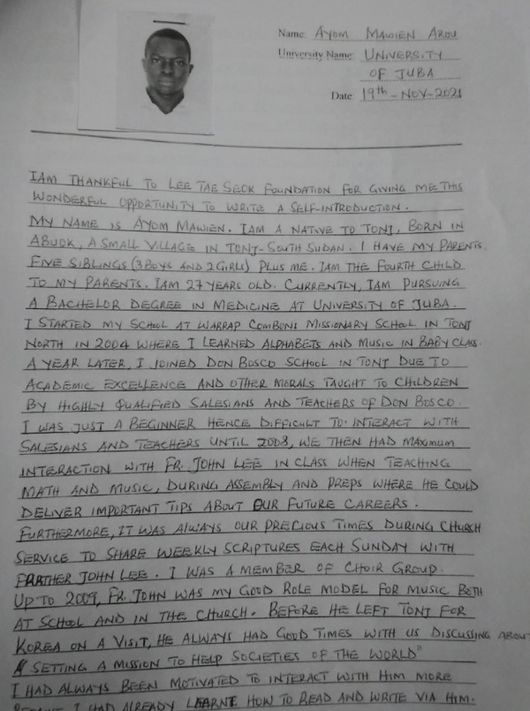 Name: AYOM MAWIEN AROU
University Name: UNIVERSITY
OF JUBA
Date: 19th - NOV - 2021
I AM THANKFUL TO LEE TAE SEOK FOUNDATION FOR GIVING ME THIS
WONDERFUL OPPORTUNITY TO WRITE A SELF-INTRODUCTION.
MY NAME IS AYOM MAWIEN. I AM A NATIVE TO TONJ, BORN IN
ABUOK, A SMALL VILLAGE IN TONJ-SOUTH SUDAN. I HAVE MY PARENTS,
FIVE SIBLINGS (3 BOYS AND 2 GIRLS) PLUS ME. I AM THE FOURTH CHILD
TO MY PARENTS. I AM 27 YEARS OLD. CURRENTLY, I AM PURSUING
A BACHELOR DEGREE IN MEDICINE AT UNIVERSITY OF JUBA.
I STARTED MY SCHOOL AT WARRAP COMBONI MISSIONARY SCHOOL IN TONJ
NORTH IN 2004 WHERE I LEARNED ALPHABETS AND MUSIC IN BABY CLASS.
A YEAR LATER, I JOINED DON BOSCO SCHOOL IN TONJ DUE TO
ACADEMIC EXCELLENCE AND OTHER MORALS TAUGHT TO CHILDREN
BY HIGHLY QUALIFIED SALESIANS AND TEACHERS OF DON BOSCO.
I WAS JUST A BEGINNER HENCE DIFFICULT TO INTERACT WITH
SALESIANS AND TEACHERS UNTIL 2008, WE THEN HAD MAXIMUM
INTERACTION WITH FR. JOHN LEE IN CLASS WHEN TEACHING
MATH AND MUSIC, DURING ASSEMBLY AND PREPS WHERE HE COULD
DELIVER IMPORTANT TIPS ABOUT OUR FUTURE CAREERS.
FURTHERMORE, IT WAS ALWAYS OUR PRECIOUS TIMES DURING CHURCH
SERVICE TO SHARE WEEKLY SCRIPTURES EACH SUNDAY WITH
FRATHER JOHN LEE. I WAS A MEMBER OF CHOIR GROUP.
UP TO 2009, FR. JOHN WAS MY GOOD ROLE MODEL FOR MUSIC BOTH
AT SCHOOL AND IN THE CHURCH. BEFORE HE LEFT TONJ FOR
KOREA ON A VISIT, HE ALWAYS HAD GOOD TIMES WITH US DISCUSSING ABOUT
"SETTING A MISSION TO HELP SOCIETIES OF THE WORLD"
I HAD ALWAYS BEEN MOTIVATED TO INTERACT WITH HIM MORE
I HAD ALREADY LEARNT HOW TO READ AND WRITE VIA HIM.